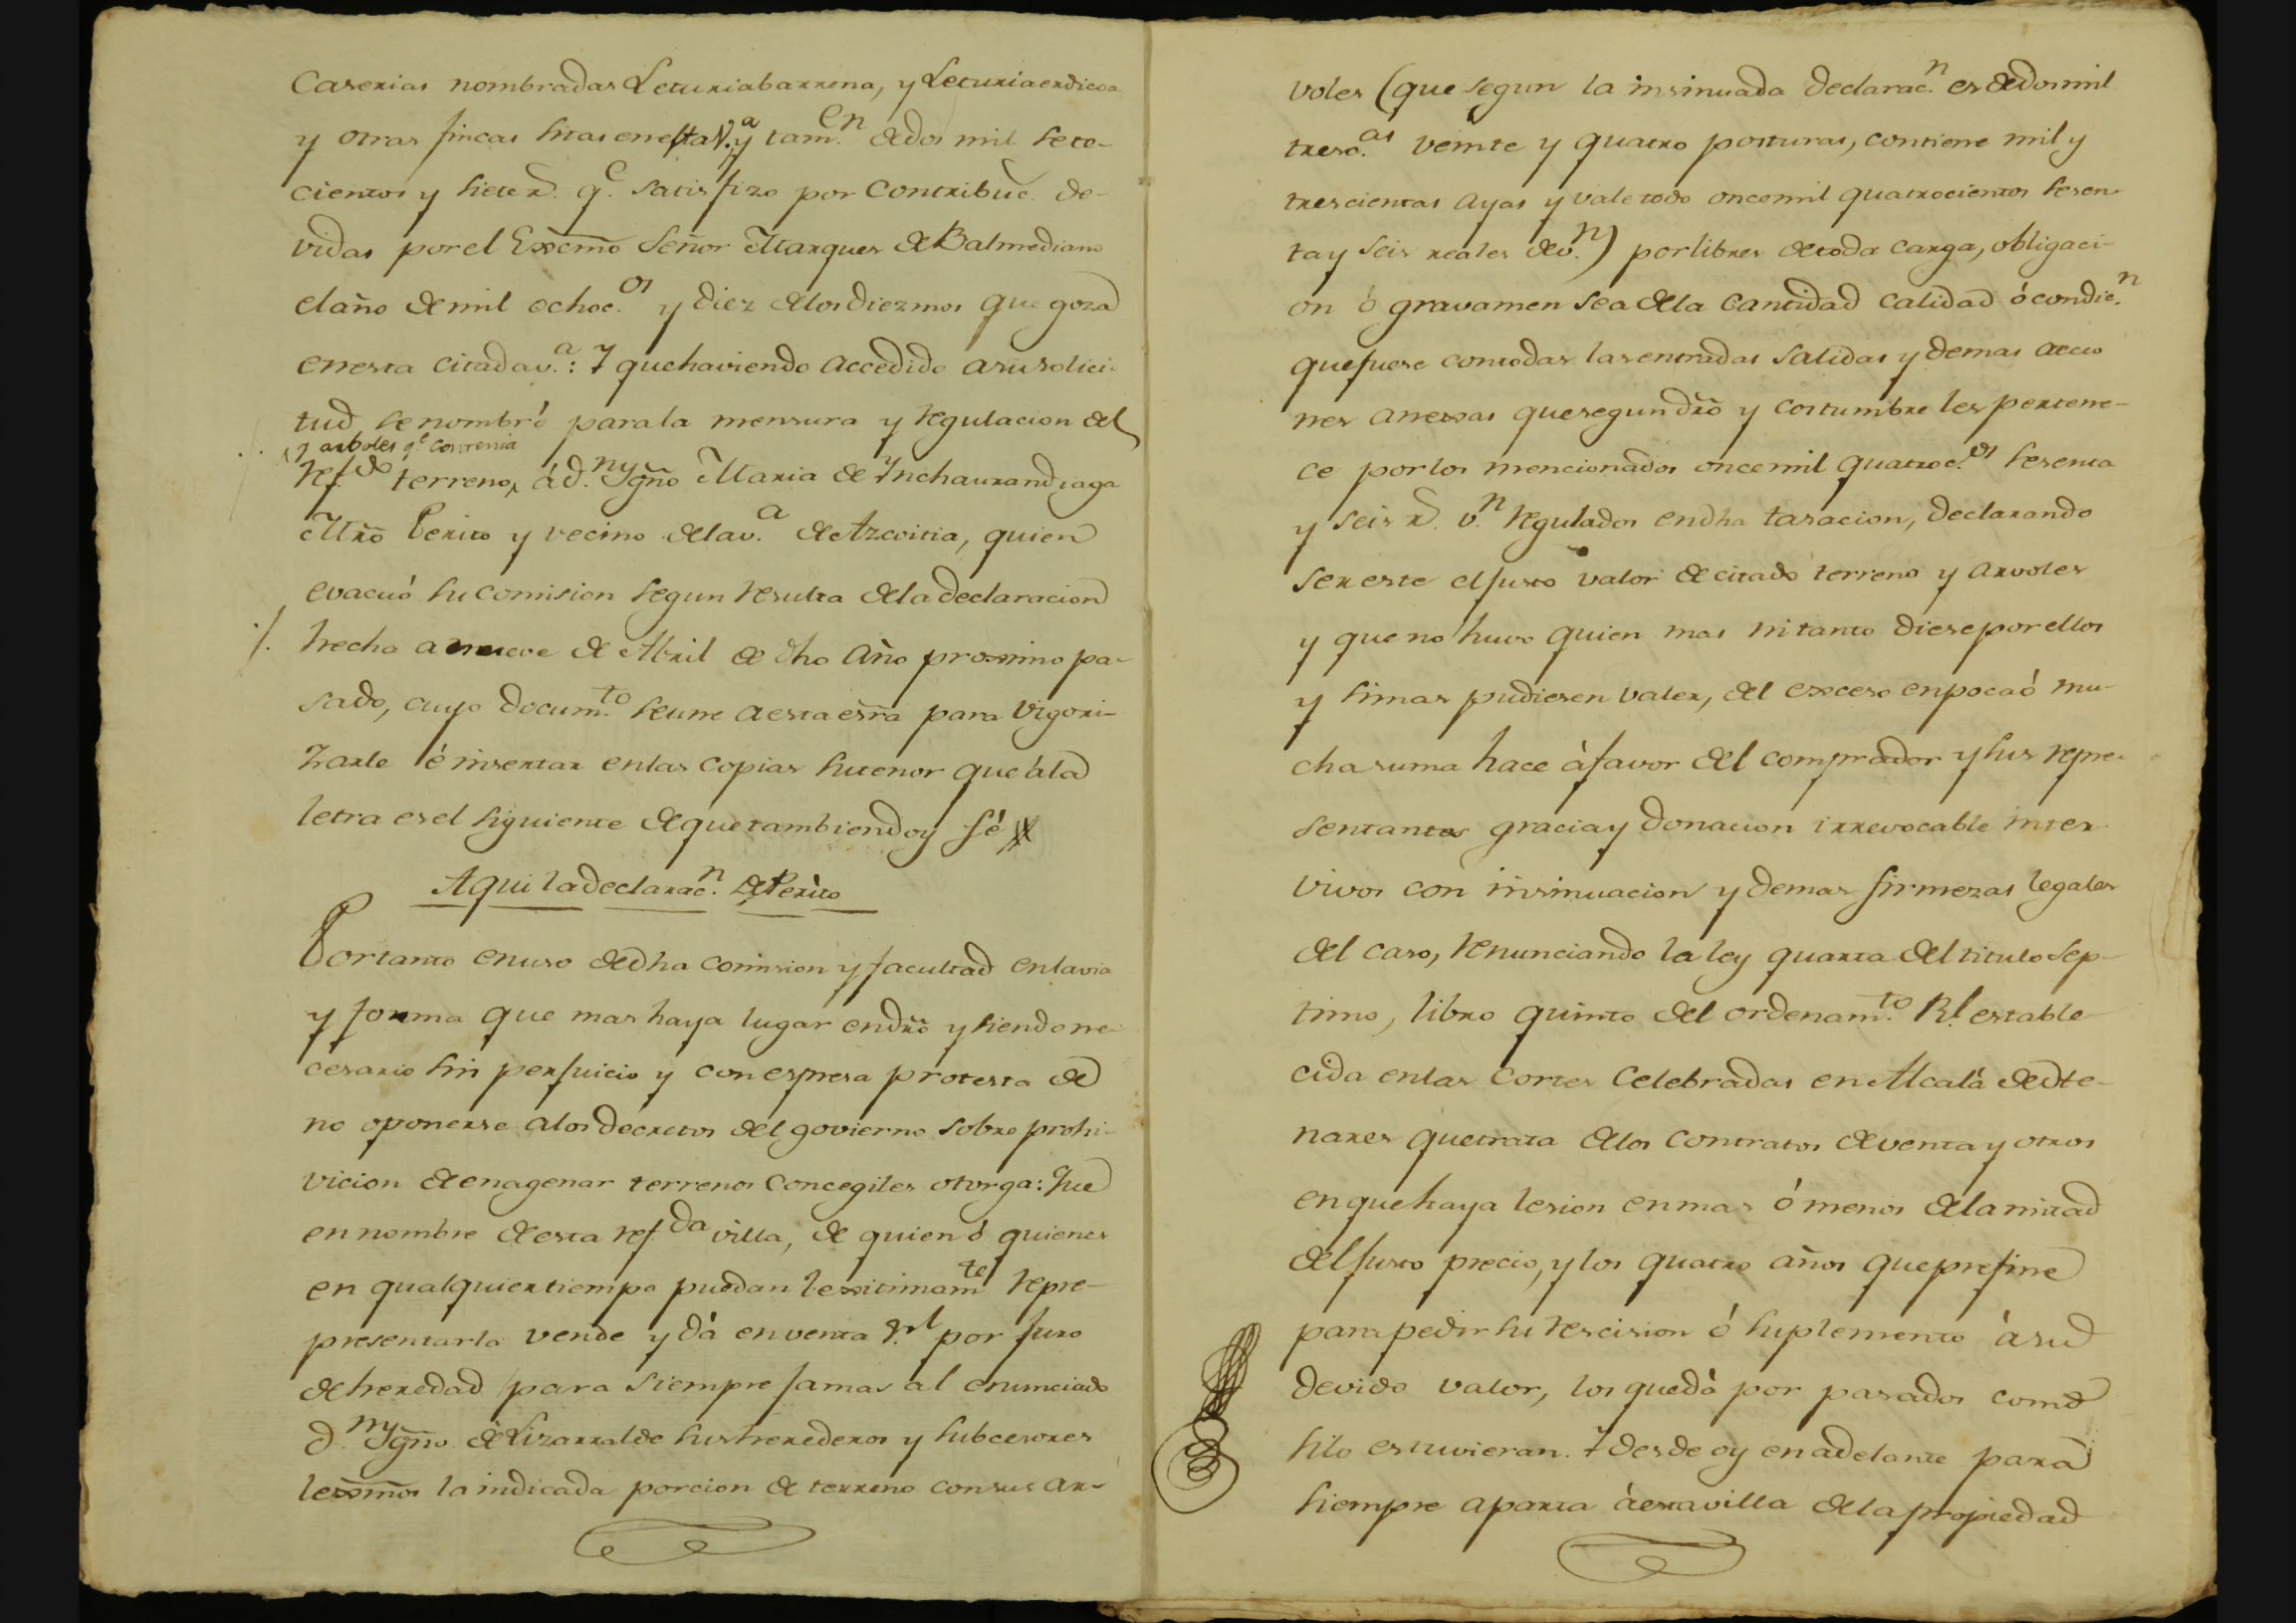 Caserias nombradas Leturiabarrena, y Leturiaerdicoa
y otras fincas sitas en esta V.a y tam.en de dos mil sete-
cientos y siete r.s q.e satisfizo por Contribuc. de-
vidas por el Exmo Señor Marques de Balmediano
el año de mil ochoc.os y diez de los diezmos que goza
en esta citada v.a: Y que haviendo accedido a su solici-
tud, se nombró para la mensura y regulacion del
y arboles q.e contenia
ref.do terreno, á d.n Ygño Maria de Ynchaurandiaga
Mro Perito y vecino de la v.a de Azcoitia, quien
evacuó su comision segun resulta de la declaracion
hecha a nueve de Abril de dho año proximo pa-
sado, cuyo docum.to se une a esta esra para vigori-
zarle é insertar en las copias su tenor que á la
letra es el siguiente de que tambien doy fé
Aqui la declarac.n del Perito
Por tanto en uso de dha comision y facultad en la via
y forma que mas haya lugar en dro y siendo ne-
cesario sin perjuicio y con espresa protesta de
no oponerse a los decretos del govierno sobre prohi-
vicion de enagenar terrenos Concegiles otorga: Que
en nombre de esta ref.da villa, de quien ó quienes
en qualquier tiempo puedan lexitimam.te repre-
presentarla vende y dá en venta r.l por juro
de heredad para siempre jamas al enunciado
d.n Ygño de Lizarralde sus herederos y subcesores
lexmos la indicada porcion de terreno con sus ar-
voles (que segun la insinuada declarac.n es de dos mil
tresc.as veinte y quatro posturas, contiene mil y
trescientas ayas y vale todo once mil quatrocientos sesen-
ta y seis reales de v.n) por libres de toda carga, obligaci-
on ó gravamen sea de la cantidad calidad ó condic.n
que fuere con todas las entradas salidas y demas accio
nes anexas que segun dro y costumbre les pertene-
ce por los mencionados once mil quatroc.os sesenta
y seis r.s v.n regulados en dha tasacion, declarando
ser este el justo valor de citado terreno y arvoles
y que no huvo quien mas ni tanto diese por ellos
y si mas pudiesen valer, del exceso en poca ó mu-
cha suma hace á favor del comprador y sus repre-
sentantes gracia y donacion irrevocable inter
vivos con insinuacion y demas firmezas legales
del caso, renunciando la ley quarta del titulo sep-
timo, libro quinto del ordenam.to R.l estable-
cida en las Cortes Celebradas en Alcalá de He-
nares que trata de los contratos de venta y otros
en que haya lesion en mas ó menos de la mitad
del justo precio, y los quatro años que prefine
para pedir su rescision ó suplemento á su
devido valor, los que dá por pasados como
si lo estuvieran. Y desde oy en adelante para
siempre aparta á esta villa de la propiedad